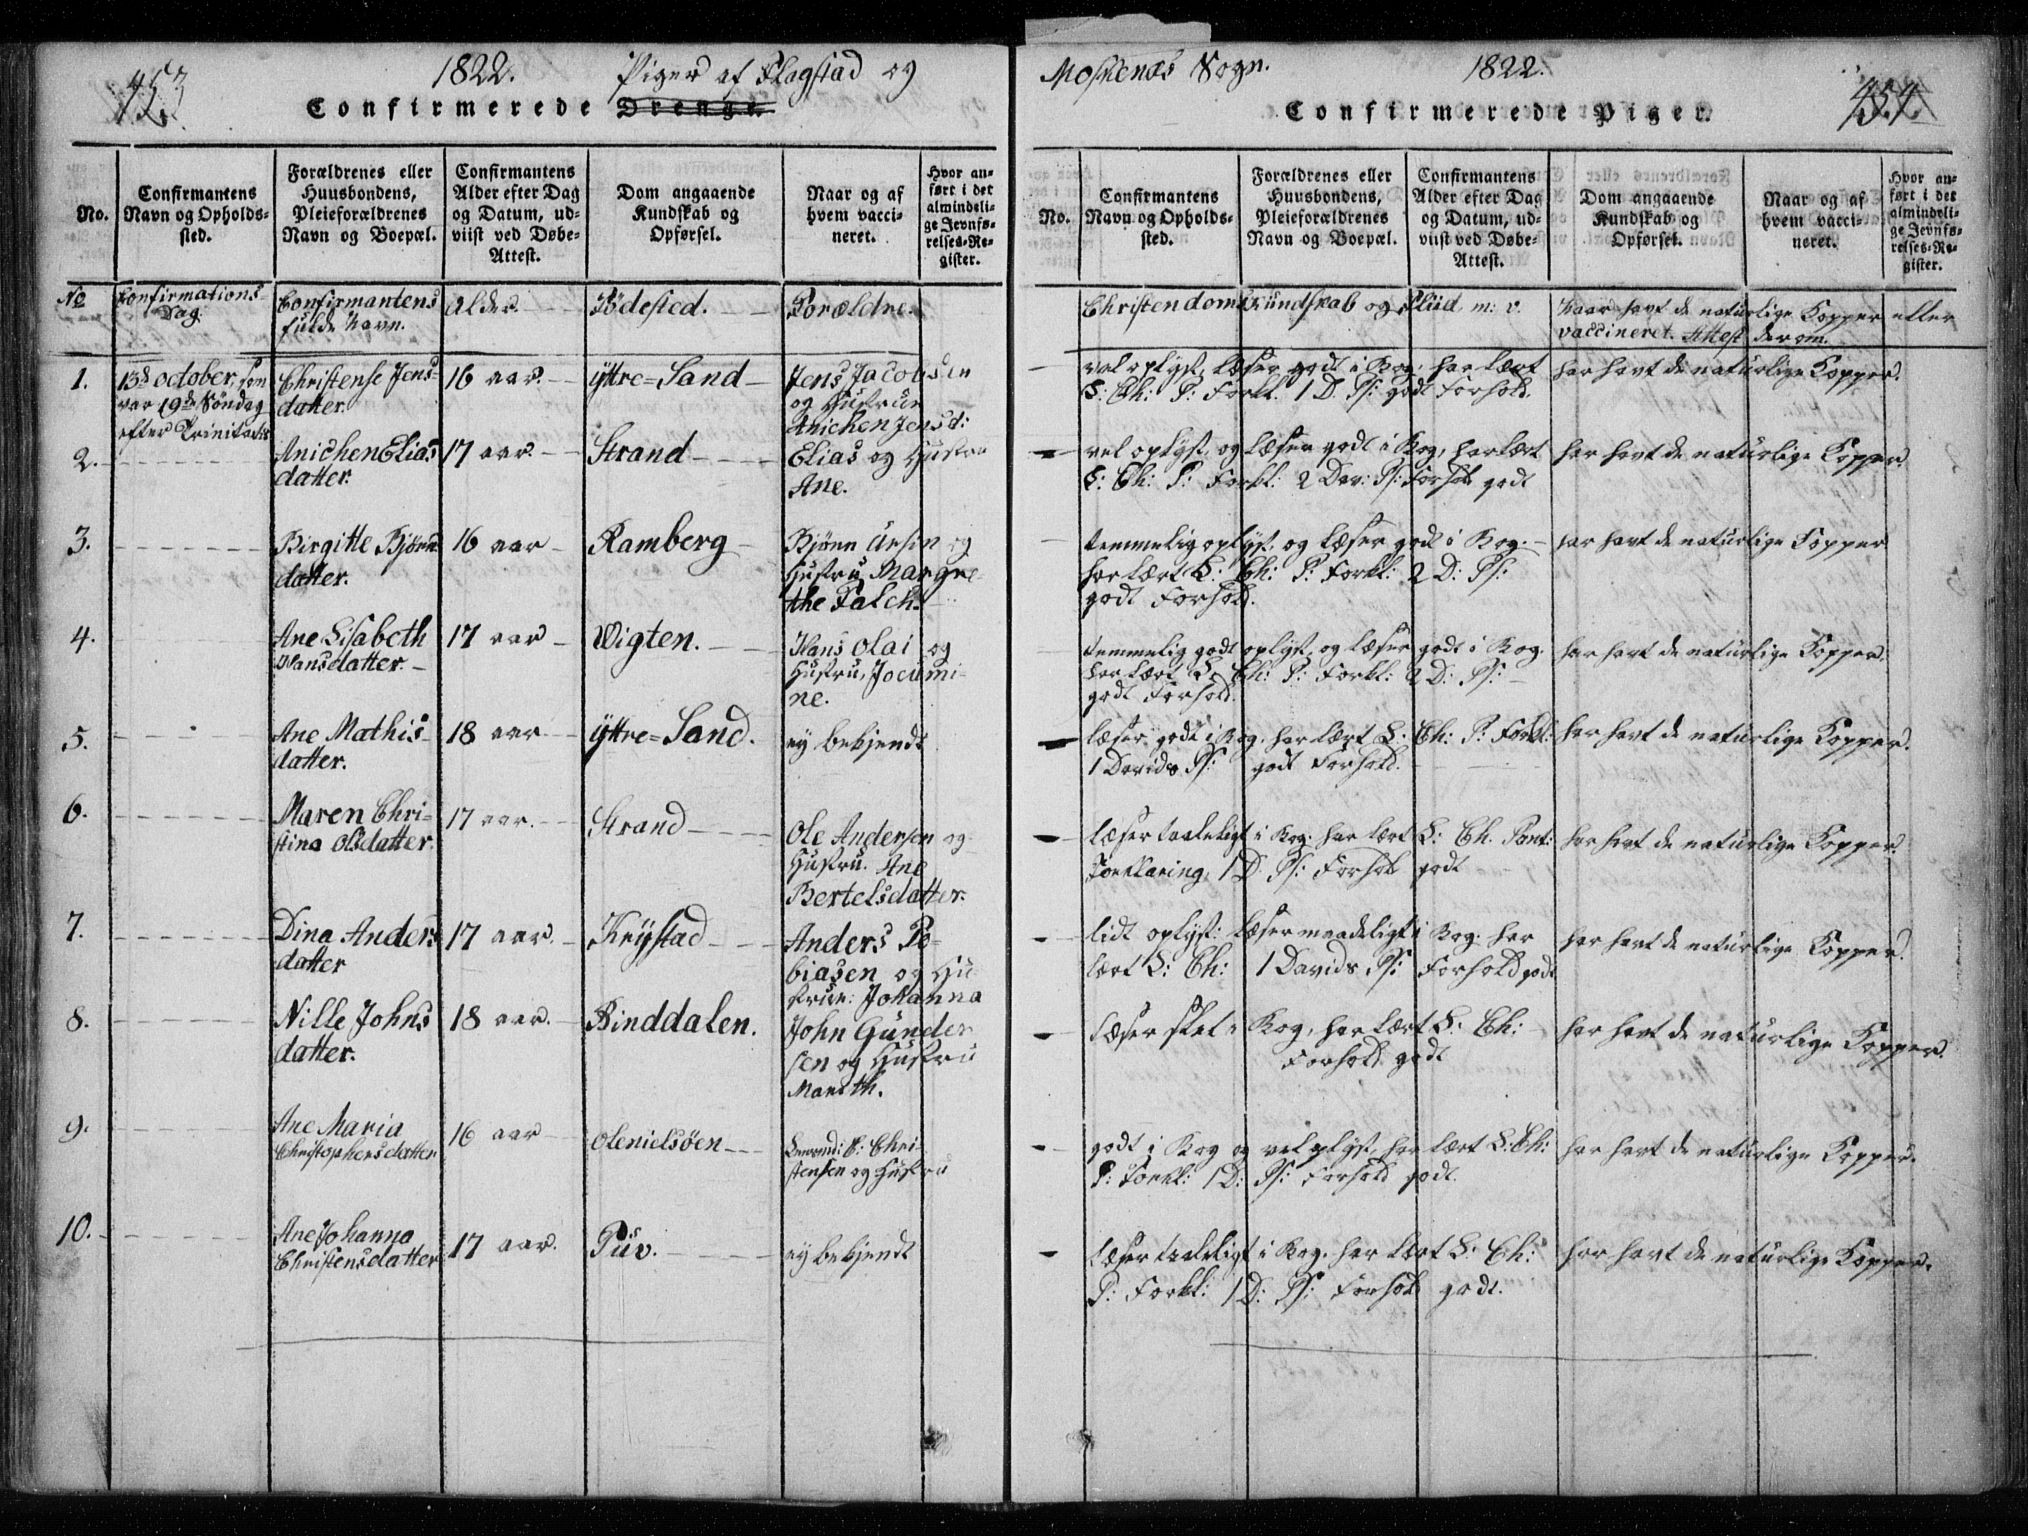 453
1822. Piger af Flagstad og
Confirmerede Drenge.
No.
Confirmantens
Navn og Opholds-
sted.
Forældrenes eller
Huusbondens,
Pleieforældrenes
Navn og Boepæl.
Confirmantens
Alder efter Dag
og Datum, ud-
viist ved Døbe-
Attest.
Dom angaaende
Kundskab og
Opførsel.
Naar og af
hvem vacci-
neret.
Hvor an-
ført i det
almindeli-
ge Jevnfø-
relses-Re-
gister.
No
Confirmations
Dag.
Confirmantens
fulde Navn.
Alder.
Födested.
Forældre.
1.
13de October, som
var 19de Söndag
efter Trinitatis
Christense Jens-
datter.
16 aar.
Yttre=Sand
Jens Jacobsen
og Hustrue
Anichen Jensd:
2.
Anichen Elias
datter.
17 aar
Strand
Elias og Hustru
Ane.
3.
Birgitte Bjørn
datter.
16 aar
Ramberg
Bjönn Ursin og
Hustru Margre-
the Falch.
4.
Ane Lisabeth
Hansdatter.
17 aar
Wigten.
Hans Olai og
Hustru, Jocumi-
ne.
5.
Ane Mathis-
datter.
18 aar
Yttre=Sand.
ey bekjendt
6.
Maren Chri-
stina Olsdatter.
17 aar.
Strand
Ole Andersen og
Hustru. Ane
Bertelsdatter.
7.
Dina Anders
datter
17 aar.
Krÿstad
Anders To-
biasen og Hu-
strue: Johanna
8.
Nille Johns
datter.
18 aar.
Binddalen.
John Günder
sen og Hustru
Mareth.
9.
Ane Maria
Christophersdatter
16 aar
Olenielsöen
C: Chri-
stensen og Hustru
10.
Ane Johanna
Christensdatter
17 aar.
ey bekjendt
Moskenæs Sogn. 1822.
454.
Confirmerede Piger.
No.
Confirmantens
Navn og Opholds-
sted.
Forældrenes eller
Huusbondens,
Pleieforældrenes
Navn og Boepæl.
Confirmantens
Alder efter Dag
og Datum, ud-
viist ved Døbe-
Attest.
Dom angaaende
Kundskab og
Opførsel.
Naar og af
hvem vacci-
neret.
Hvor an-
ført i det
almindeli-
ge Jevnfø-
relses-Re-
gister.
Christendomskundskab og Fliid, m: v.
havt de naturlige Kopper eller
vaccineret. Attest derom.
vel oplyst, læser godt i Bog, har lært
L: Ch: P: Forkl. 1 D. Ps: godt Forhold.
har havt de naturlige Kopper.
vel oplyst, og læser godt i Bog, har lært
L: Ch: P: Forkl: 2 Dav: Ps: Forhold godt
har havt de naturlige Kopper.
temmelig oplyst, og læser godt i Bog.
har lært L: Ch: P: Forkl: 2 D: Ps:
godt Forhold.
har havt de naturlige Kopper
temmelig godt oplyst, og læser godt i Bog.
har lært L: Ch: P: Forkl: 2 D: Ps:
godt Forhold.
har havt de naturlige Kopper.
læser godt i Bog. har lært L: Ch: P: Forkl:
1 Davids Ps: godt Forhold.
har havt de naturlige Kopper.
læser taaleligt i Bog. har lært L: Ch. Pont:
Forklaring, 1 D. Ps: Forhold godt
har havt de naturlige Kopper.
lidt oplyst: læser maadeligt i Bog. har
lært L: Ch: 1 Davids Ps: Forhold godt
har havt de naturlige Kopper.
læser slet i Bog, har lært L: Ch:
Forhold godt
har havt de naturlige Kopper.
godt i Bog og vel oplyst, har lært L: Ch:
P: Forkl: 1 D: Ps: Forhold godt.
har havt de naturlige Kopper.
læser taaleligt i Bog. har lært L: Ch:
P: Forkl: 1 D: Ps: Forhold godt.
har havt de naturlige Kopper.